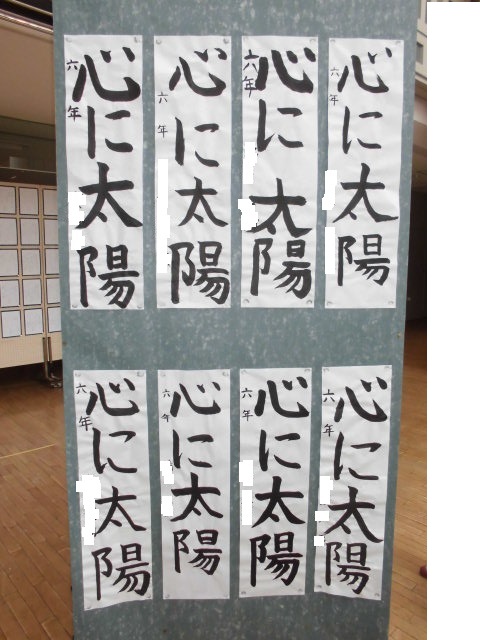 心に太陽
六年
心に太陽
六年
心に太陽
六年
心に太陽
六年
心に太陽
六年
心に太陽
六年
心に太陽
六年
心に太陽
六年